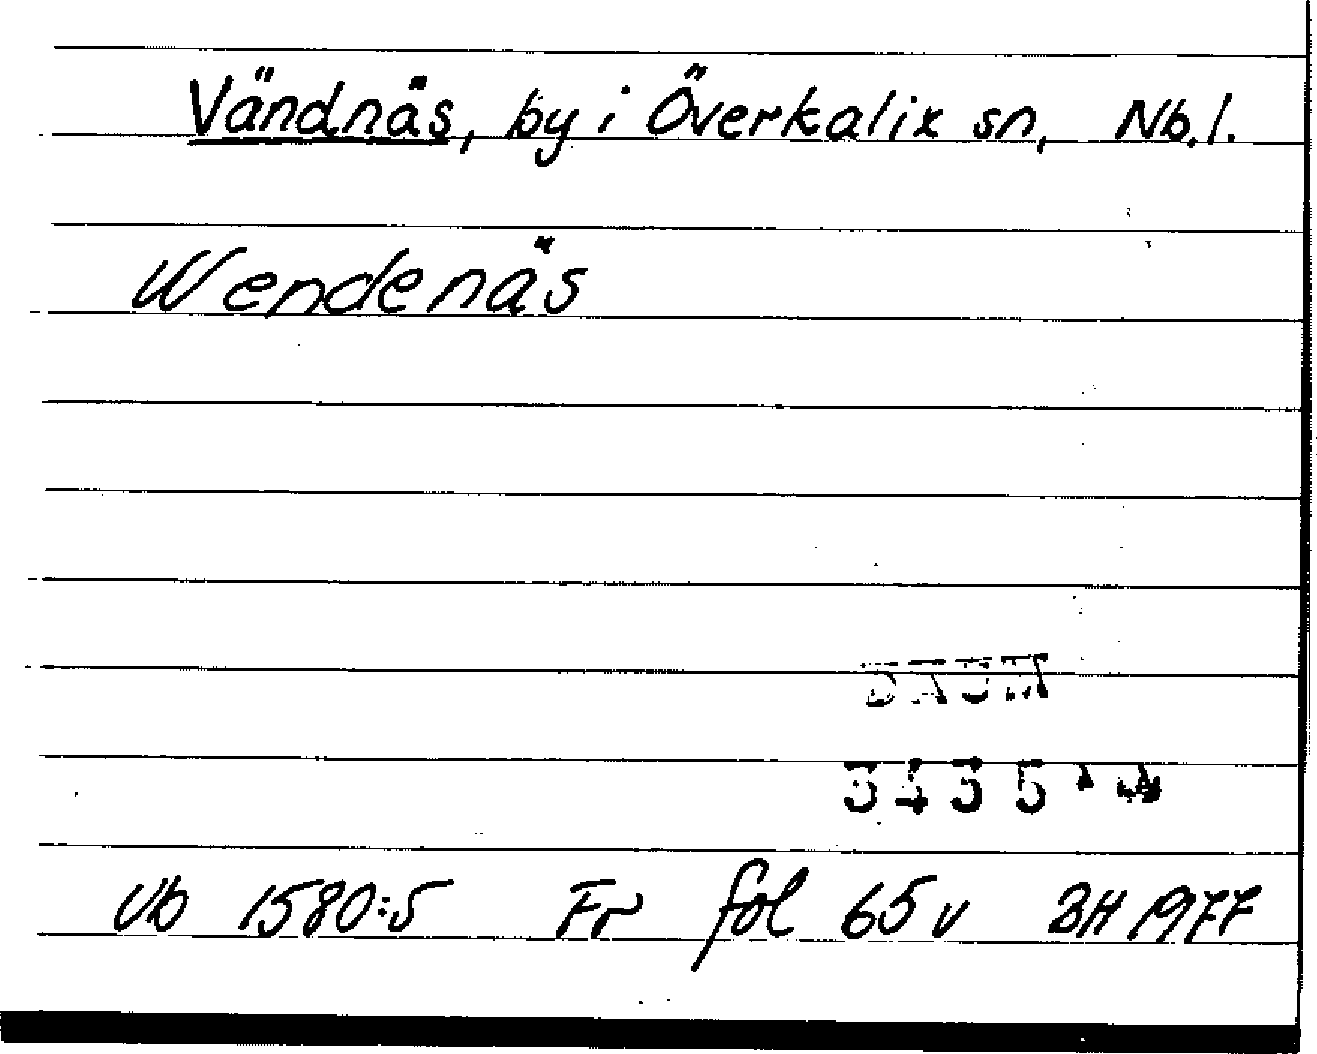 Vändnäs, by i Överkalix sn, Nb.l.
Wendenäs
Vb 1580:5 Fr fol 65 v BH 1977